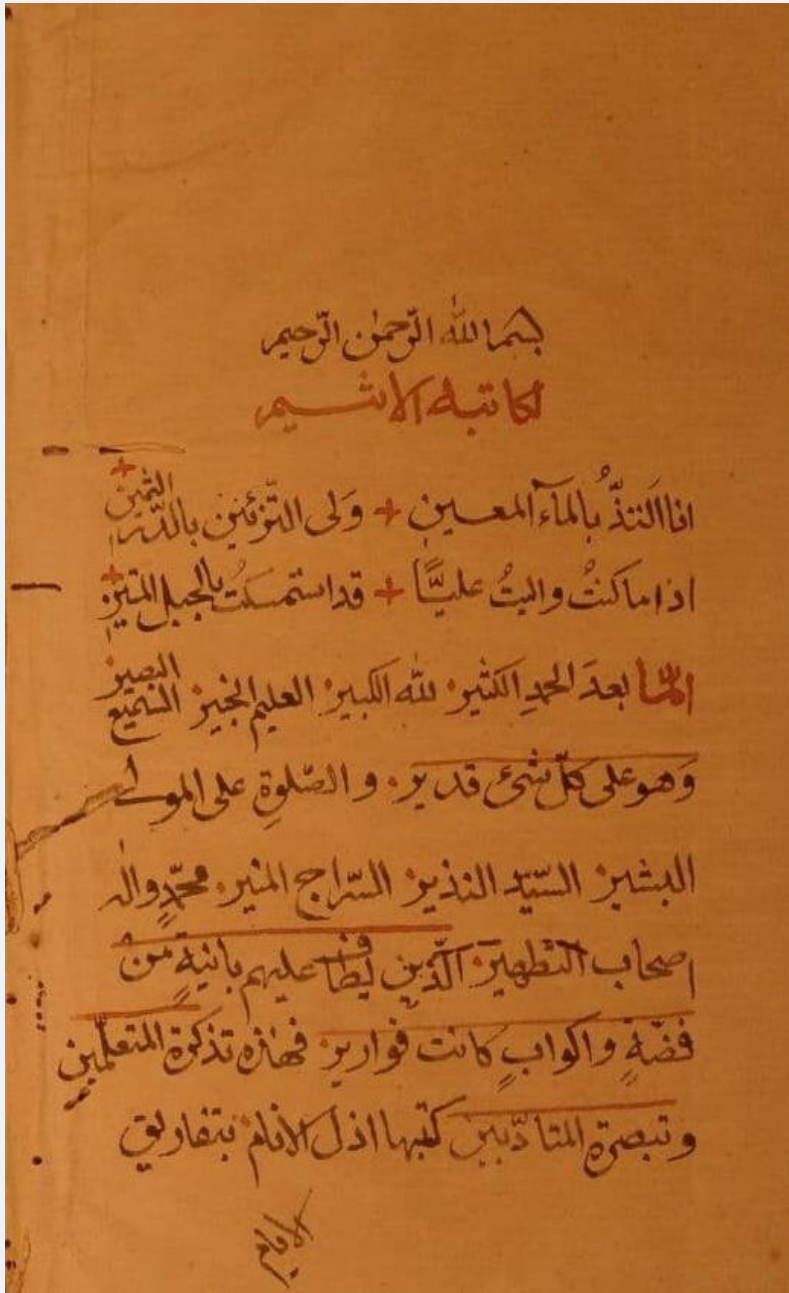 بسم الله الرّحمٰن الرّحيم
لكاتبه الاثيم
انا التذُّ بالمآء المعين + ولى التّزئين بالدّر الثمين +
اذا ما كنتُ واليتُ عليّاً + قد استمسكتُ بالحبل المتين +
امّا بعدَ الحمدِ الكثير لله الكبير العليم الخبير السميع البصير
وهو على كلّ شئ قدير والصّلوةِ على المولى
البشير السّيّد النذير السّراج المنير محمّدٍ واله
اصحاب التّطهير الّذين يُطافُ عليهم بانيةٍ من
فضّةٍ واكوابٍ كانت قوارير فهذه تذكرة المتعلّمين
وتبصرة المتادّبين كتبها اذل الانام بتفاريق